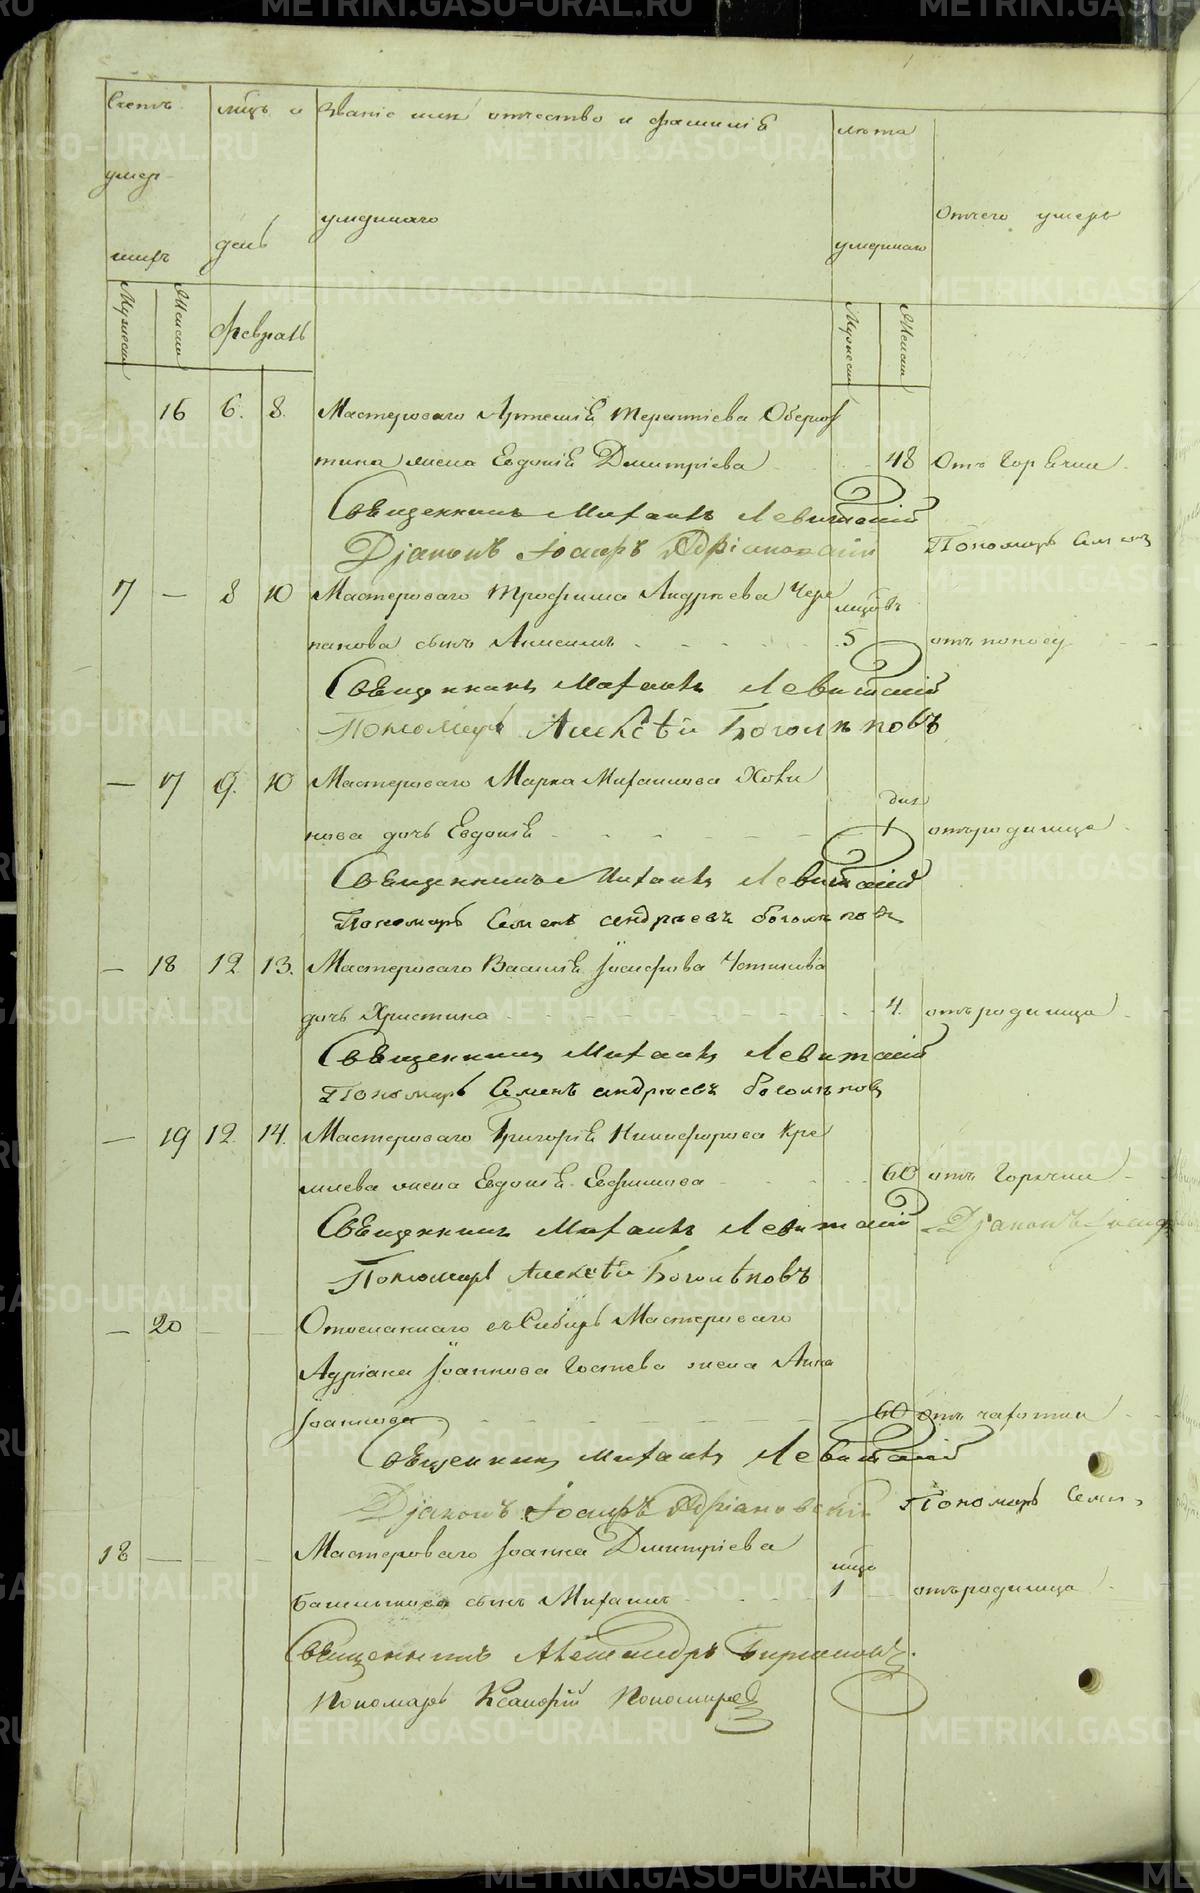 Счетъ
умер-
шихъ
мѣсъ и
день
Званіе имя отчество и фамилія
умершаго
лѣта
умершаго
Отчего умеръ
Мужеска
Женска
Февраль
Мужеска
Женска
16 6. 8. Мастероваго Артемія Терентіева Оберюх
тина жена Евдокія Дмитріева 48 Отъ Горячки
Священникъ Михаилъ Левитскій
Діаконъ Іосифъ Адріановскій Пономарь Семенъ
7 — 8 10 Мастероваго Трофима Андреева Чере
мѣсцовъ
панова сынъ Анисимъ 5 отъ поносу
Священникъ Михаилъ Левитскій
Пономарь Алексѣй Боголѣповъ
— 17 9. 10 Мастероваго Марка Михаилова
дня
нова дочь Евдокія 1 отъ родимца
Священникъ Михаилъ Левитскій
Пономарь Семенъ андреевъ боголѣповъ
— 18 12 13. Мастероваго Василія Іосифова
дочь Христина 4. отъ родимца
Священникъ Михаилъ Левитскій
Пономарь Семенъ андреевъ боголѣповъ
— 19 12. 14. Мастероваго Григорія Никифорова Кре
млева жена Евдокія Евфимова 60 отъ Горячки
Священникъ Михаилъ Левитскій Діаконъ Іосифъ
Пономарь Алексѣй Боголѣповъ
— 20 — — Отосланнаго въ Сибирь Мастероваго
Адріана Іоаннова Гостева жена Анна
Іоаннова 60 Отъ чахотки
Священникъ Михаилъ Левитскій
Діаконъ Іосифъ Адріановскій Пономарь Семен
18 — — — Мастероваго Іоанна Дмитріева
мѣсц
сынъ Михаилъ 1 отъ родимца
Священникъ Александръ Бирюковъ.
Пономарь Ксанфій Пономаревъ
METRIKI.GASO-URAL.RU